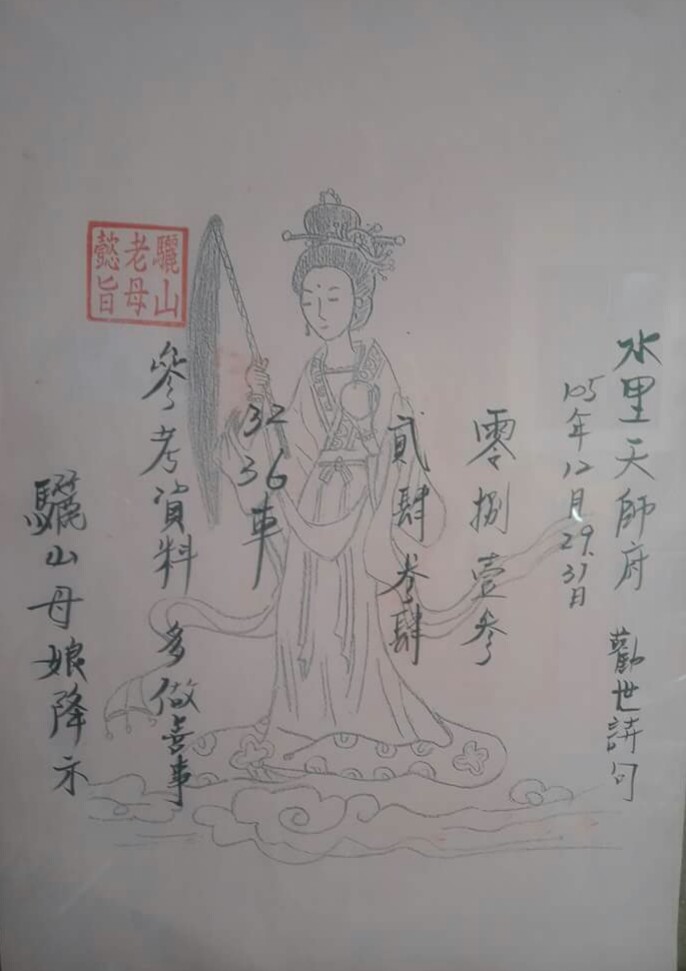 水里天師府 勸世詩句
105年12月29.31日
零捌壹參
貳肆叁肆
32 36車
參考資料 多做善事
驪山老母懿旨
驪山母娘降示